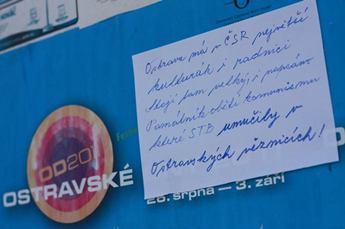 Ostrava má v ČSR největší
kulturák i radnici
stojí tam velký, i neznámo
Památník obětí komunismu
které STB umučily v
Ostravských věznicích!
OD20
OSTRAVSKÉ
28. srpna — 3. září